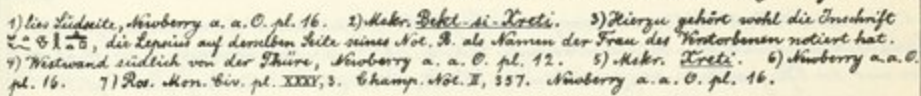 1) lies Südseite, Newberry a. a. O. pl. 16. 2) Mskr. Bekt-si-Kreti. 3) Hierzu gehört wohl die Inschrift
, die Lepsius auf derselben Seite seines Not. B. als Namen der Frau des Verstorbenen notiert hat.
4) Westwand südlich von der Thüre, Newberry a. a. O. pl. 12. 5) Mskr. Kreti. 6) Newberry a.a.O.
pl. 16. 7) Ros. Mon. Civ. pl. XXXV, 3. Champ. Not. II, 337. Newberry a.a.O. pl. 16.